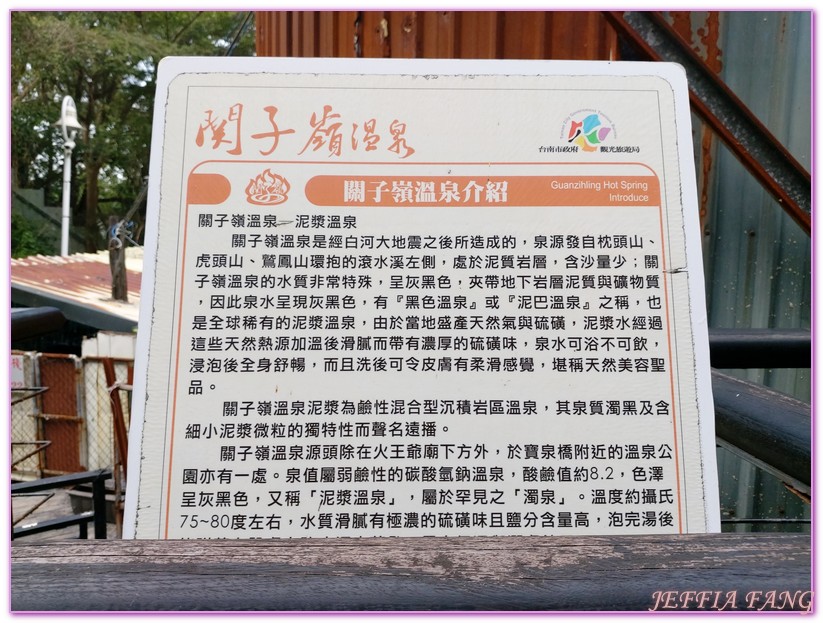 關子嶺溫泉
台南市政府 觀光旅遊局
關子嶺溫泉介紹
Guanzihling Hot Spring
Introduce
關子嶺溫泉—泥漿溫泉
關子嶺溫泉是經白河大地震之後所造成的，泉源發自枕頭山、
虎頭山、鷲鳳山環抱的滾水溪左側，處於泥質岩層，含沙量少；關
子嶺溫泉的水質非常特殊，呈灰黑色，夾帶地下岩層泥質與礦物質
，因此泉水呈現灰黑色，有『黑色溫泉』或『泥巴溫泉』之稱，也
是全球稀有的泥漿溫泉，由於當地盛產天然氣與硫磺，泥漿水經過
這些天然熱源加溫後滑膩而帶有濃厚的硫磺味，泉水可浴不可飲，
浸泡後全身舒暢，而且洗後可令皮膚有柔滑感覺，堪稱天然美容聖
品。
關子嶺溫泉泥漿為鹼性混合型沉積岩區溫泉，其泉質濁黑及含
細小泥漿微粒的獨特性而聲名遠播。
關子嶺溫泉源頭除在火王爺廟下方外，於寶泉橋附近的溫泉公
園亦有一處。泉值屬弱鹼性的碳酸氫鈉溫泉，酸鹼值約8.2，色澤
呈灰黑色，又稱「泥漿溫泉」，屬於罕見之「濁泉」。溫度約攝氏
75~80度左右，水質滑膩有極濃的硫磺味且鹽分含量高，泡完湯後
JEFFIA FANG